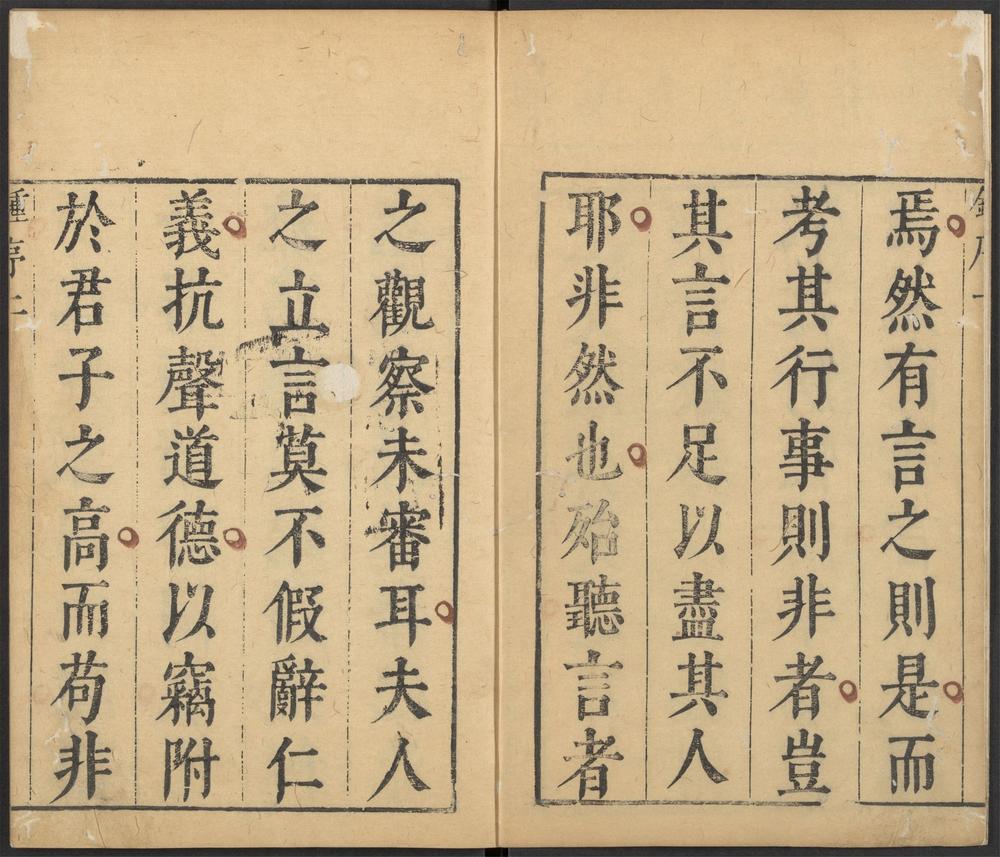 焉然有言之則是而
考其行事則非者豈
其言不足以盡其人
耶非然也殆聽言者
之觀察未審耳夫人
之立言莫不假辭仁
義抗聲道德以竊附
於君子之高而苟非
序二